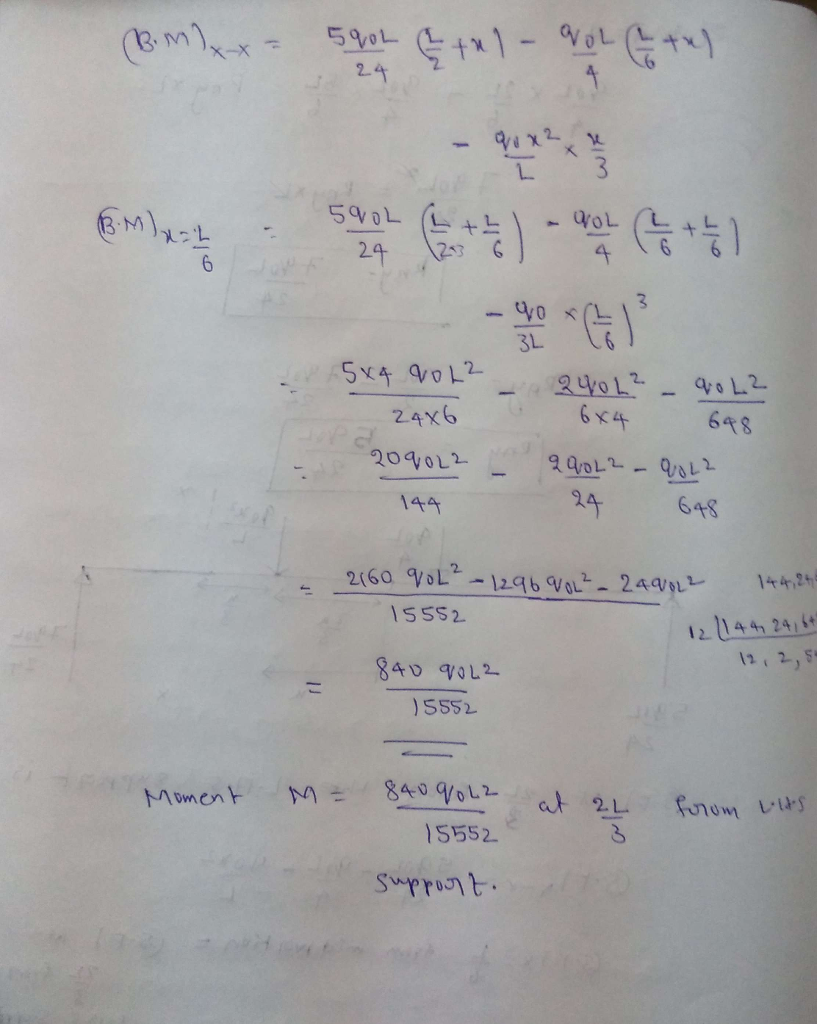 (B.M)x-x = 5q0L/24 (L/2 + x) - q0L/4 (L/6 + x)
- q0x²/L × x/3
(B.M)x=L/6 = 5q0L/24 (L/2 + L/6) - q0L/4 (L/6 + L/6)
- q0/3L × (L/6)³
= 5×4 q0L²/24×6 - 2q0L²/6×4 - q0L²/648
= 20q0L²/144 - 2q0L²/24 - q0L²/648
= 2160 q0L² - 1296 q0L² - 24q0L²/15552
144, 24,
12 | 144, 24, 64
12, 2, 5
= 840 q0L²/15552
Moment M = 840 q0L²/15552 at 2L/3 from LHS
support.